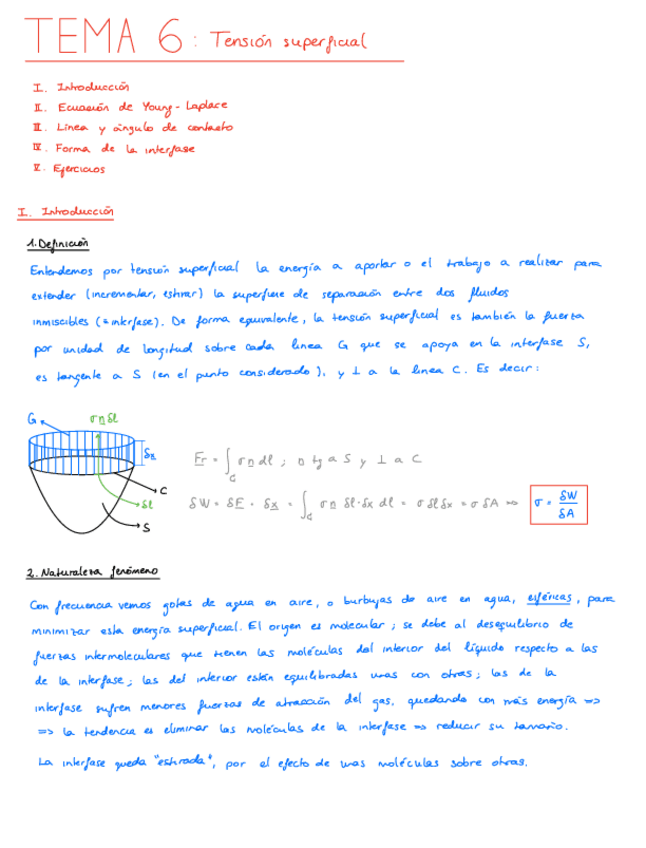 TEMA 6: Tensión superficial
I. Introducción
II. Ecuación de Young-Laplace
III. Línea y ángulo de contacto
IV. Forma de la interfase
V. Ejercicios
I. Introducción
1. Definición
Entendemos por tensión superficial la energía a aportar o el trabajo a realizar para
extender (incrementar, estirar) la superficie de separación entre dos fluidos
inmiscibles (= interfase). De forma equivalente, la tensión superficial es también la fuerza
por unidad de longitud sobre cada línea G que se apoya en la interfase S,
es tangente a S (en el punto considerado), y ⊥ a la línea C. Es decir:
G
σ n δl
δx
C
δl
S
Fr = ∫G σ n dl ; n tg a S y ⊥ a C
δW = δF · δx = ∫G σ n δl · δx dl = σ δl δx = σ δA => σ = δW/δA
2. Naturaleza fenómeno
Con frecuencia vemos gotas de agua en aire, o burbujas de aire en agua, esféricas, para
minimizar esta energía superficial. El origen es molecular; se debe al desequilibrio de
fuerzas intermoleculares que tienen las moléculas del interior del líquido respecto a las
de la interfase; las del interior están equilibradas unas con otras; las de la
interfase sufren menores fuerzas de atracción del gas, quedando con más energía =>
=> la tendencia es eliminar las moléculas de la interfase => reducir su tamaño.
La interfase queda "estirada", por el efecto de unas moléculas sobre otras.